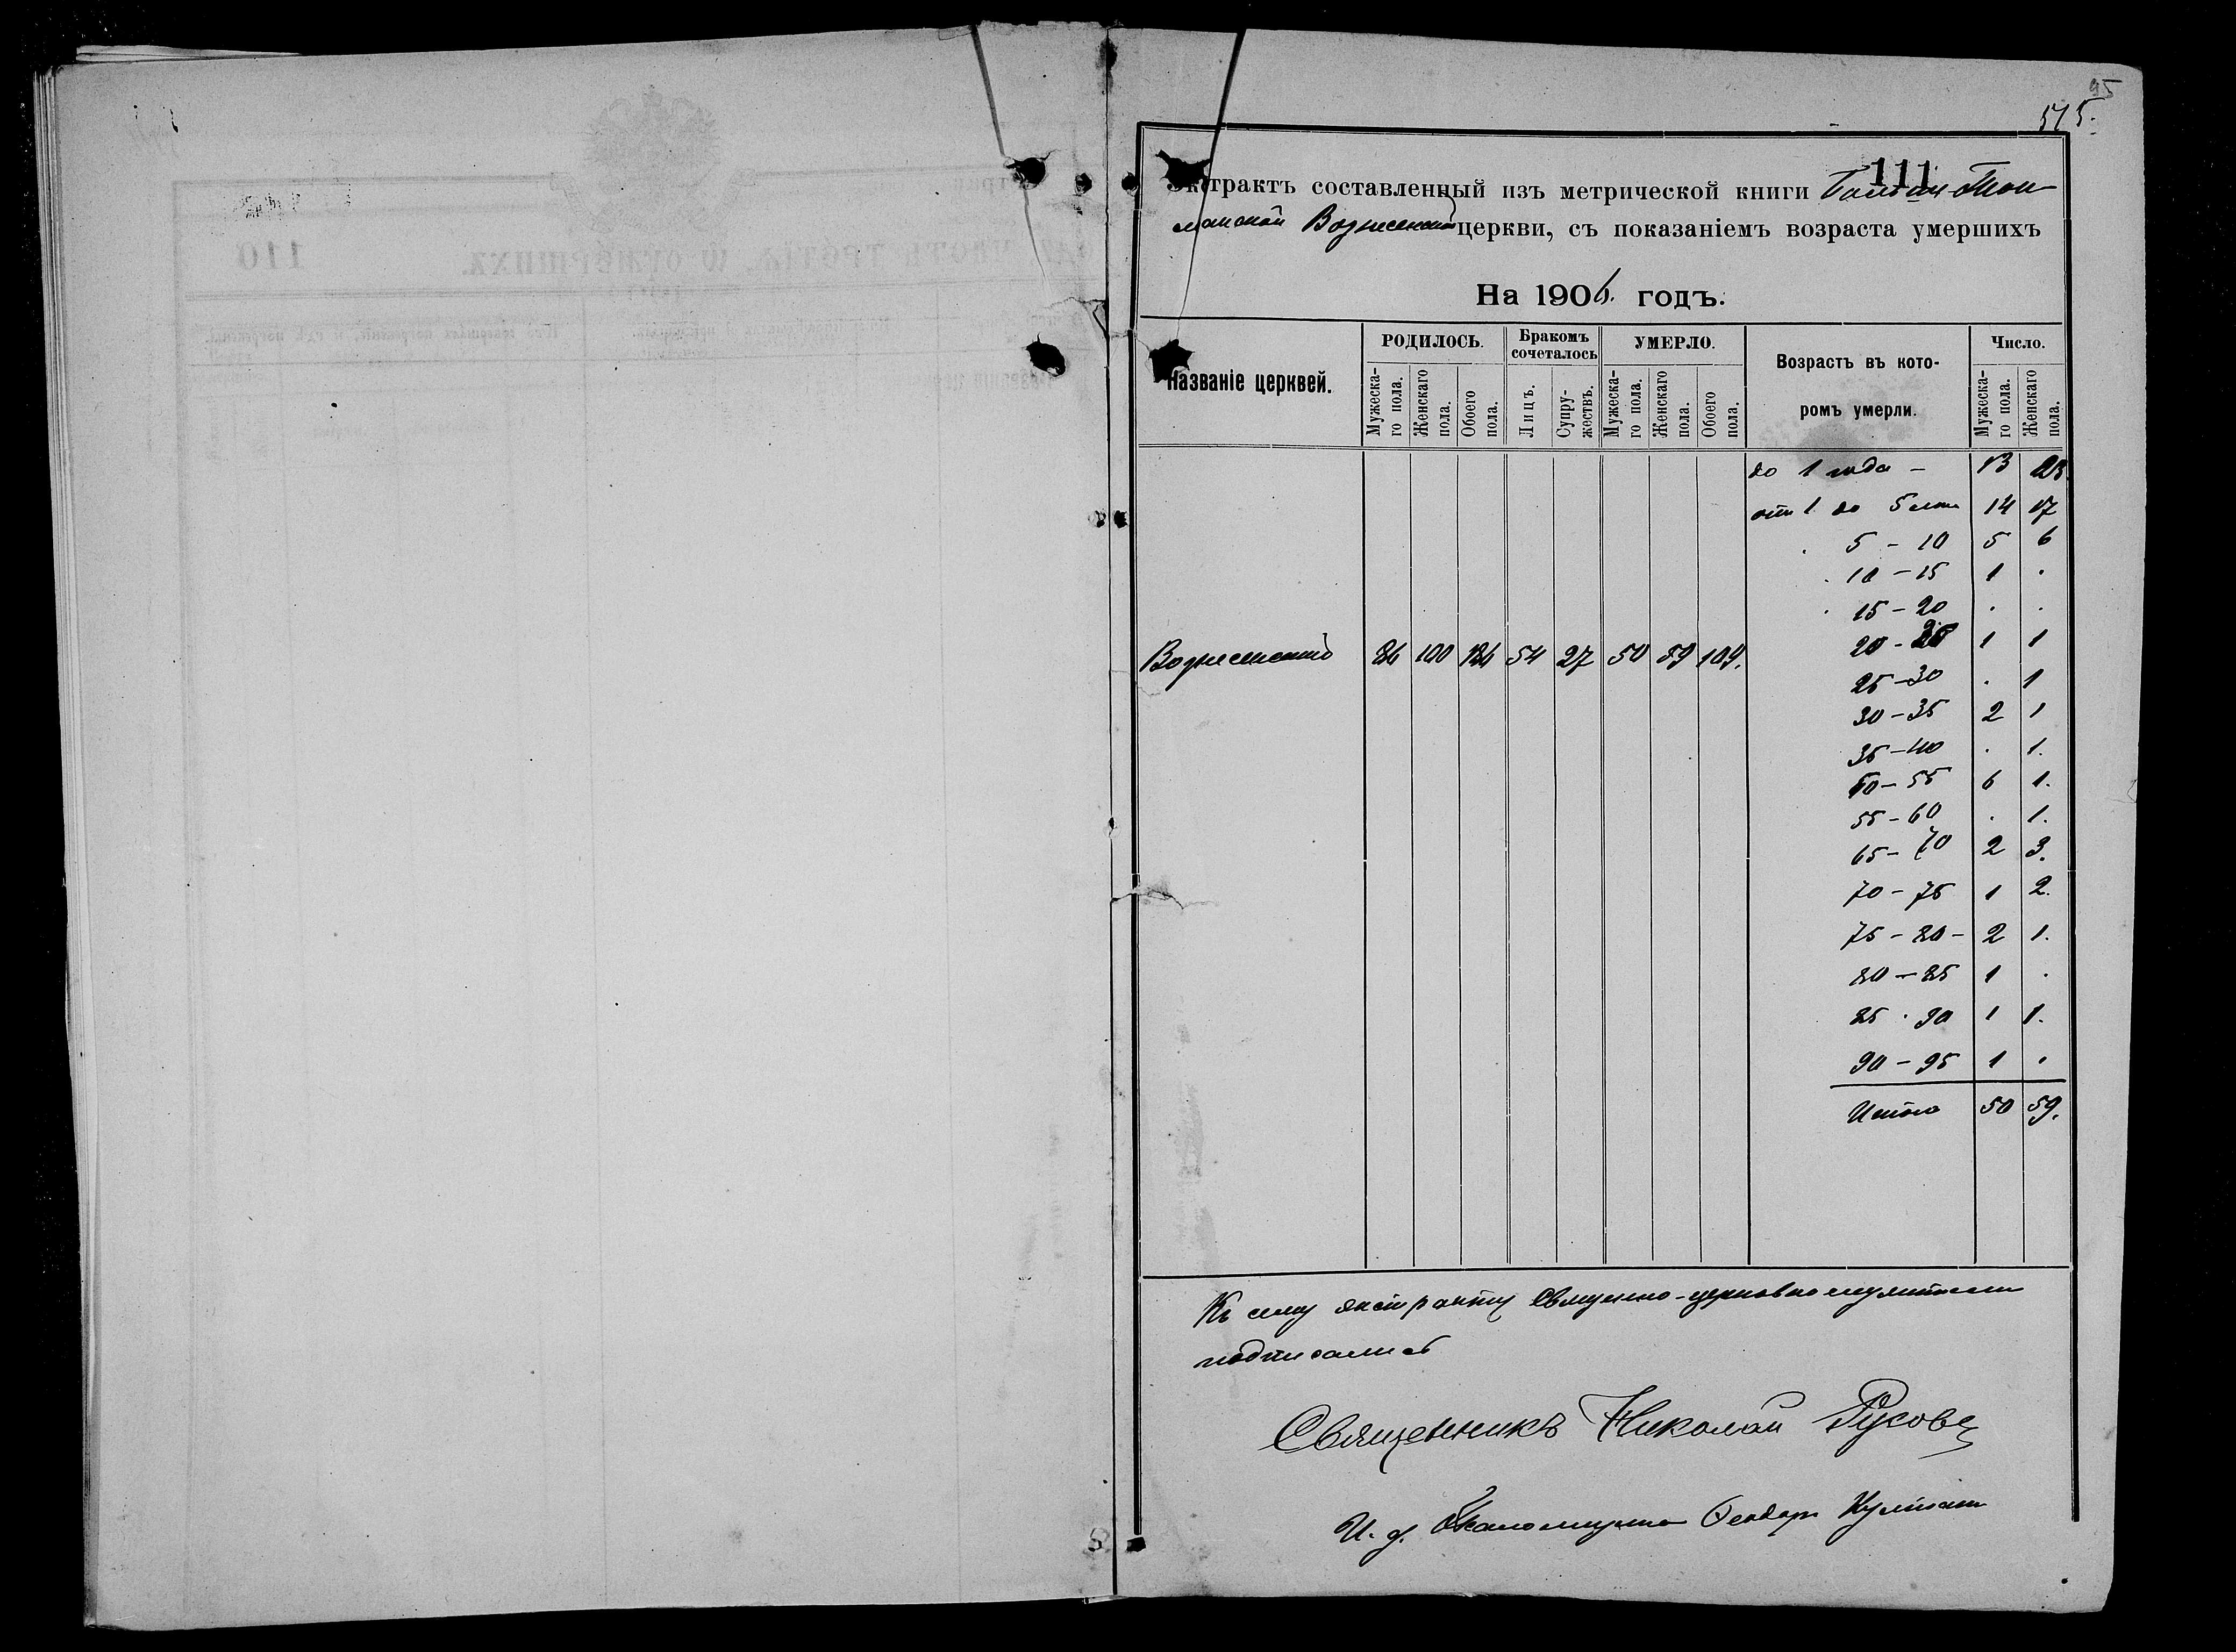 95
515.
111
Экстрактъ составленный изъ метрической книги
Вознесенской церкви, съ показаніемъ возраста умершихъ
На 1906. годъ.
Названіе церквей.
РОДИЛОСЬ.
Мужеска-го пола.
Женскаго пола.
Обоего пола.
Бракомъ сочеталось
Лицъ.
Супру-жествъ.
УМЕРЛО.
Мужеска-го пола.
Женскаго пола.
Обоего пола.
Возрастъ въ кото-
ромъ умерли.
Число.
Мужеска-го пола.
Женскаго пола.
до 1 года – 13 23
отъ 1 до 5 летъ 14 17
5 – 10 5 6
10 – 15 1 .
15 – 20 . .
20 – 25 1 1
Вознесенской 86 100 186 54 27 50 59 109.
25 – 30 . 1
30 – 35 2 1
35 – 40 . 1.
50 – 55 6 1.
55 – 60 . 1.
65 – 70 2 3.
70 – 75 1 2.
75 – 80 – 2 1.
80 – 85 1 .
85 . 90 1 1.
90 – 95 1 .
Итого 50 59.
Къ сему экстракту Священно-церковнослужители
подписались
Священникъ Николай Русовъ
И. д. Псаломщика Ѳеодоръ
110